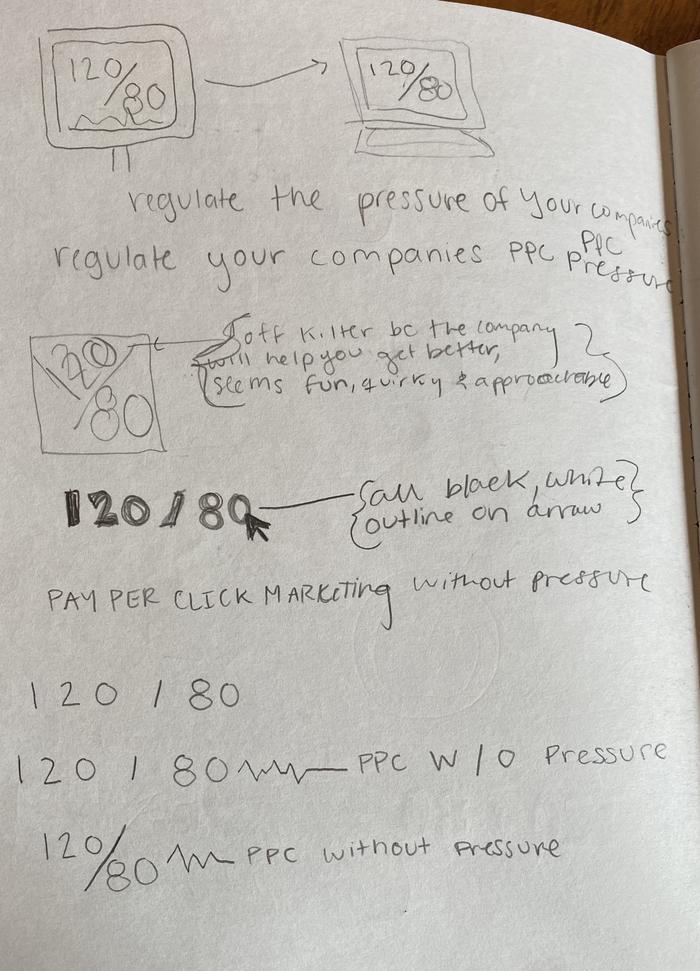 120/80
120/80
regulate the pressure of your companies
PPC
regulate your companies PPC pressure
120/80
off kilter bc the company
will help you get better,
seems fun, quirky & approachable
120/80
all black, white
outline on arrow
PAY PER CLICK MARKETING without pressure
120/80
120/80 PPC W/O Pressure
120/80 PPC without pressure